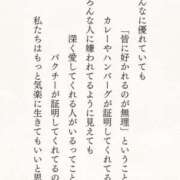 んなに優れていても
「皆に好かれるのが無理」ということ
カレーやハンバーグが証明してくれる
ろんな人に嫌われてるように見えても
深く愛してくれる人がいるってこと
パクチーが証明してくれてるの
私たちはもっと気楽に生きてもいいと思